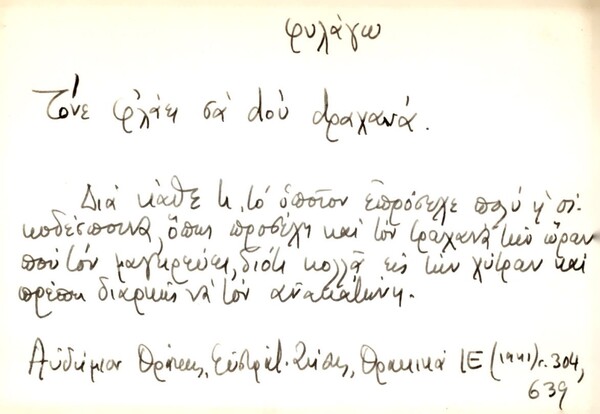 φυλάγω
Τόνε φ'λάει σὰ doὺ dραχανά.
Διὰ κάθε τι, τὸ ὁποῖον ἐπρόσεχε πολύ ἡ οἰ-
κοδέσποινα, ὅπως προσέχει καὶ τὸν τραχανὰ τὴν ὥραν
ποὺ τὸν μαγειρεύει, διότι κολλᾷ εἰς τὴν χύτραν καὶ
πρέπει διαρκῶς νὰ τὸν ἀνακατώνῃ.
Αὐδήμιον Θρᾴκης, Εὐστράτ. Ζήσης, Θρακικά ΙΕ (1941) σ. 304,
639